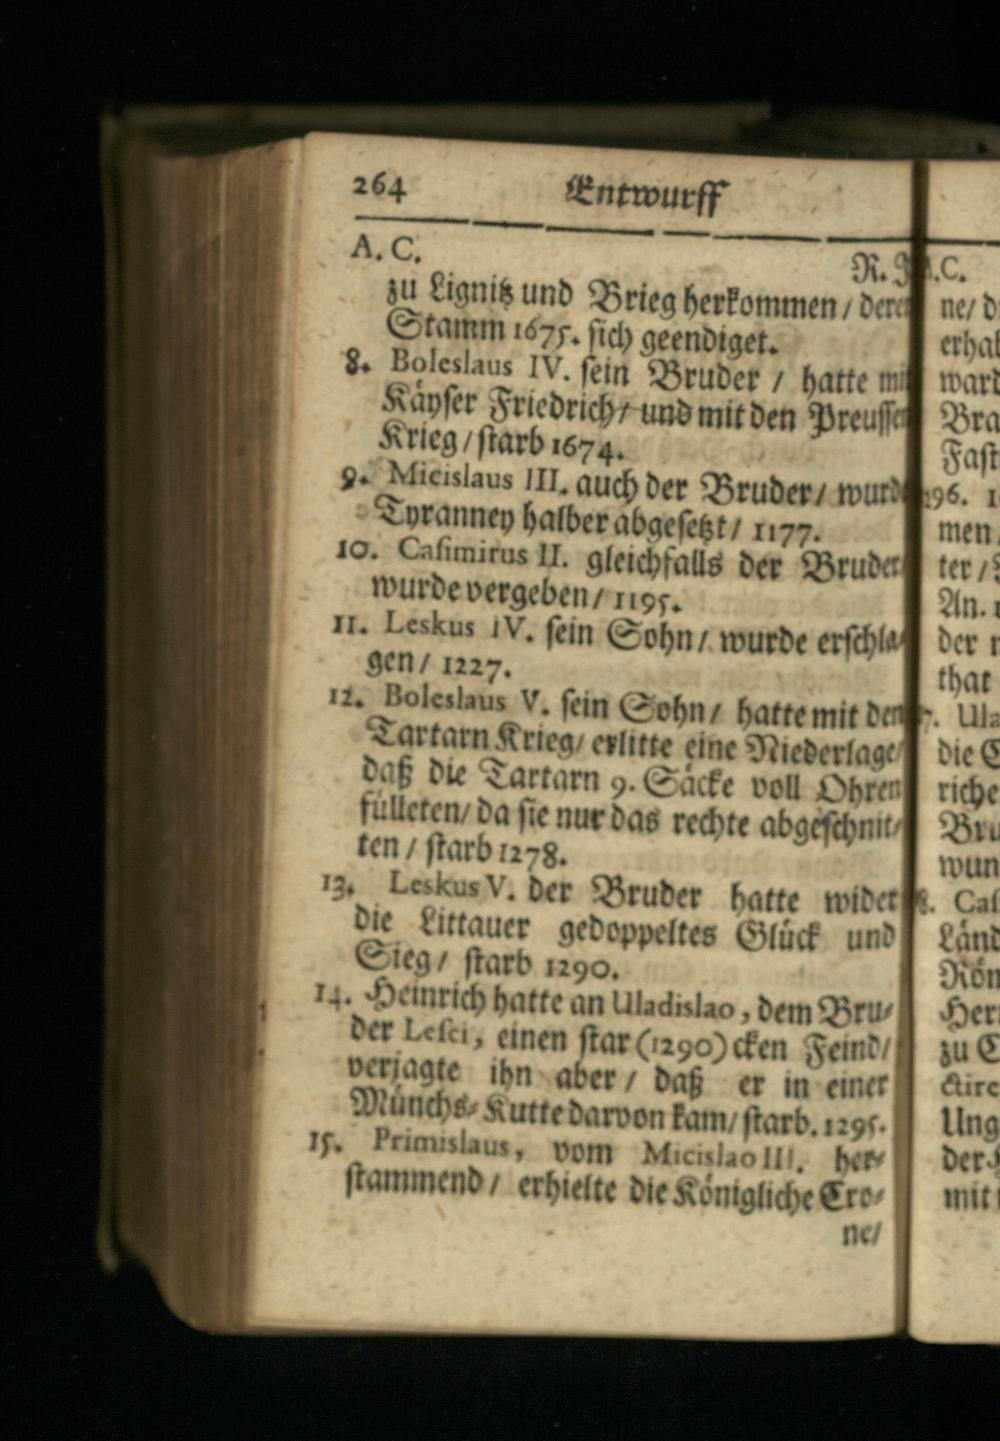 264 Entwurff
A. C. R.
zu Lignitz und Brieg herkommen / deren
Stamm 1675. sich geendiget.
8. Boleslaus IV. sein Bruder / hatte mit
Käyser Friedrich / und mit den Preussen
Krieg / starb 1674.
9. Micislaus III. auch der Bruder / wurde
Tyranney halber abgesetzt / 1177.
10. Casimirus II. gleichfalls der Bruder
wurde vergeben / 1195.
11. Leskus IV. sein Sohn / wurde erschla-
gen / 1227.
12. Boleslaus V. sein Sohn / hatte mit den
Tartarn Krieg / erlitte eine Niederlage /
daß die Tartarn 9. Säcke voll Ohren
fülleten / da sie nur das rechte abgeschnit-
ten / starb 1278.
13. Leskus V. der Bruder hatte wider
die Littauer gedoppeltes Glück und
Sieg / starb 1290.
14. Heinrich hatte an Uladislao, dem Bru-
der Lesci, einen star (1290) cken Feind /
verjagte ihn aber / daß er in einer
Münchs-Kutte darvon kam / starb. 1295.
15. Primislaus, vom Micislao III. her-
stammend / erhielte die Königliche Cro-
ne /
A.C.
ne / d
erhal
ward
Bra
Fast
296. 1
men /
ter /
An. 1
der
that
7. Ula
die
riche
Bru
wun
8. Cas
Länd
Kön
Her
zu
ctire
Ung
der
mit